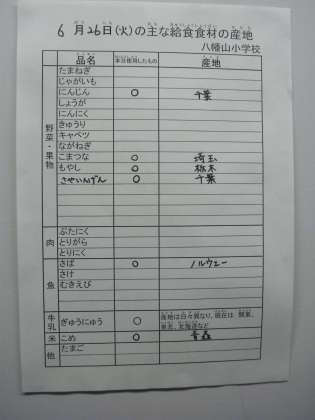 6月26日(火)の主な給食食材の産地
八幡山小学校
品名 本日使用したもの 産地
野菜・果物
たまねぎ
じゃがいも
にんじん ○ 千葉
しょうが
にんにく
きゅうり
キャベツ
ながねぎ
こまつな ○ 埼玉
もやし ○ 栃木
さやいんげん ○ 千葉
肉
ぶたにく
とりがら
とりにく
魚
さば ○ ノルウェー
さけ
むきえび
牛乳 ぎゅうにゅう ○ 産地は日々異なり、現在は 関東、
東北、北海道など
米 こめ ○ 青森
他 たまご